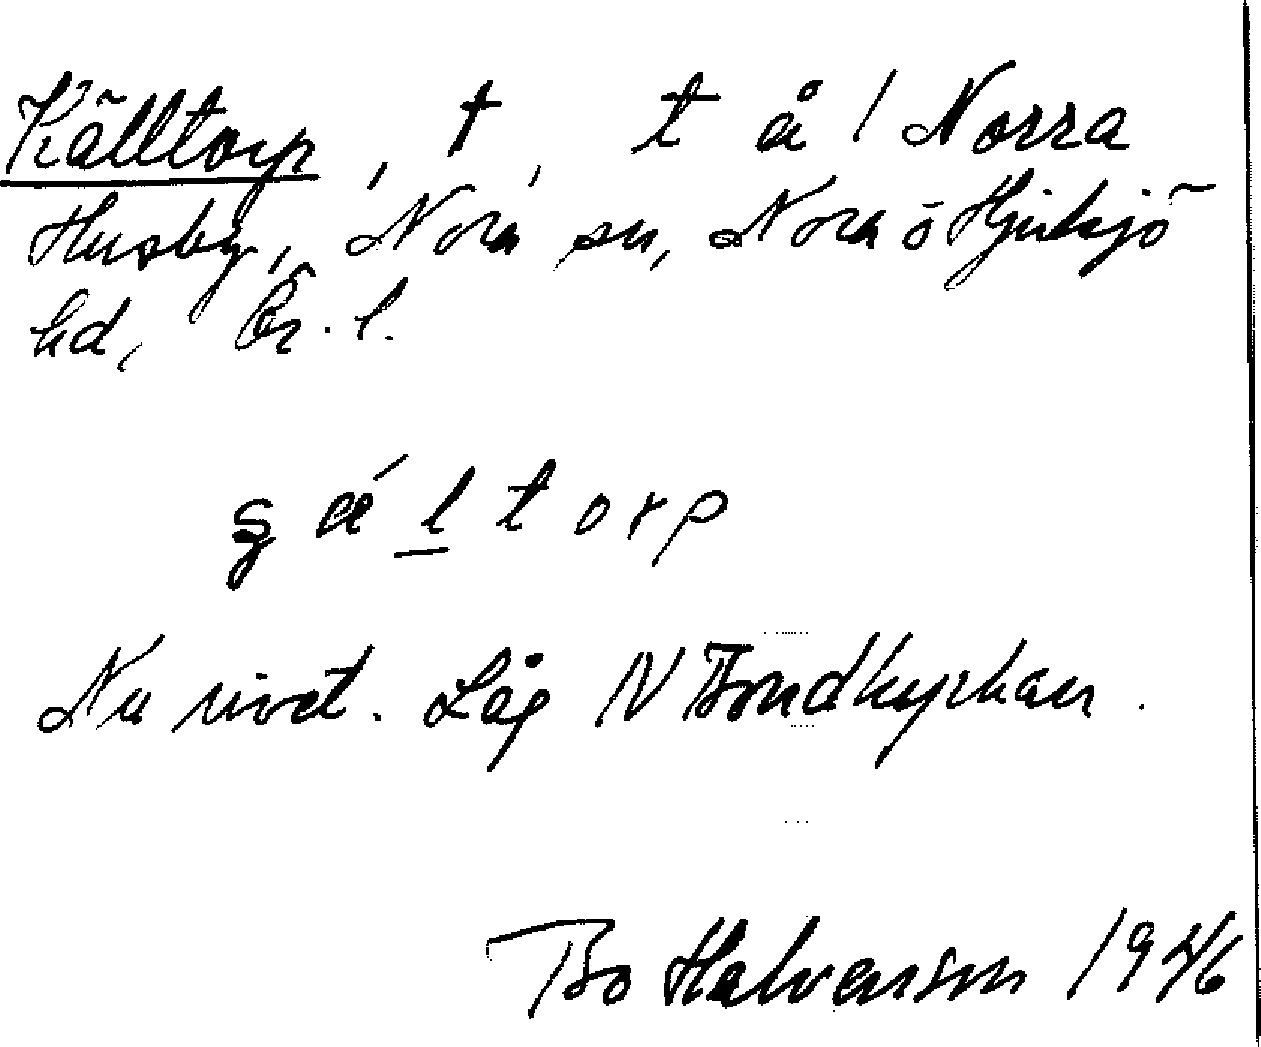 Källtorp, †, t å 1 Norra
Husby, Nora sn, Nora o Hjulsjö
hd, Ör. l.
ɕ ǽ l t o r p
Nu rivet. Låg N Bondkyrkan.
Bo Halvarson 1946